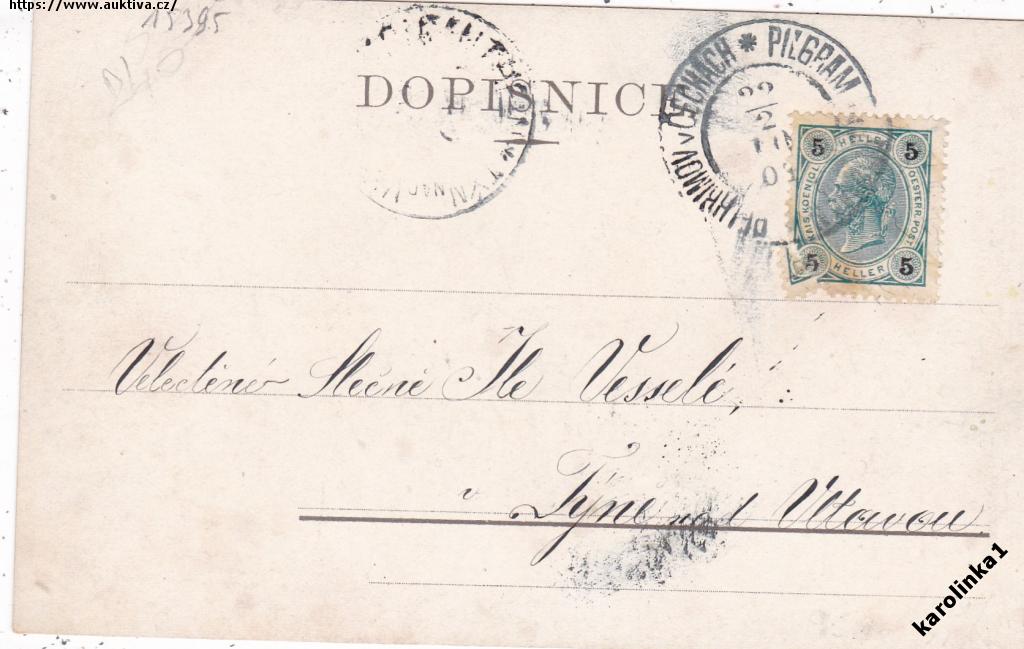 https://www.auktiva.cz/
15395
DOPISNICE
PELHŘIMOV V ČECHÁCH * PILGRAM
22
2
5 HELLER 5
KAIS. KOENIGL. OESTERR. POST.
5 HELLER 5
Velectěné Slečně Ile Vesselé,
v Týně nad Vltavou
karolinka1